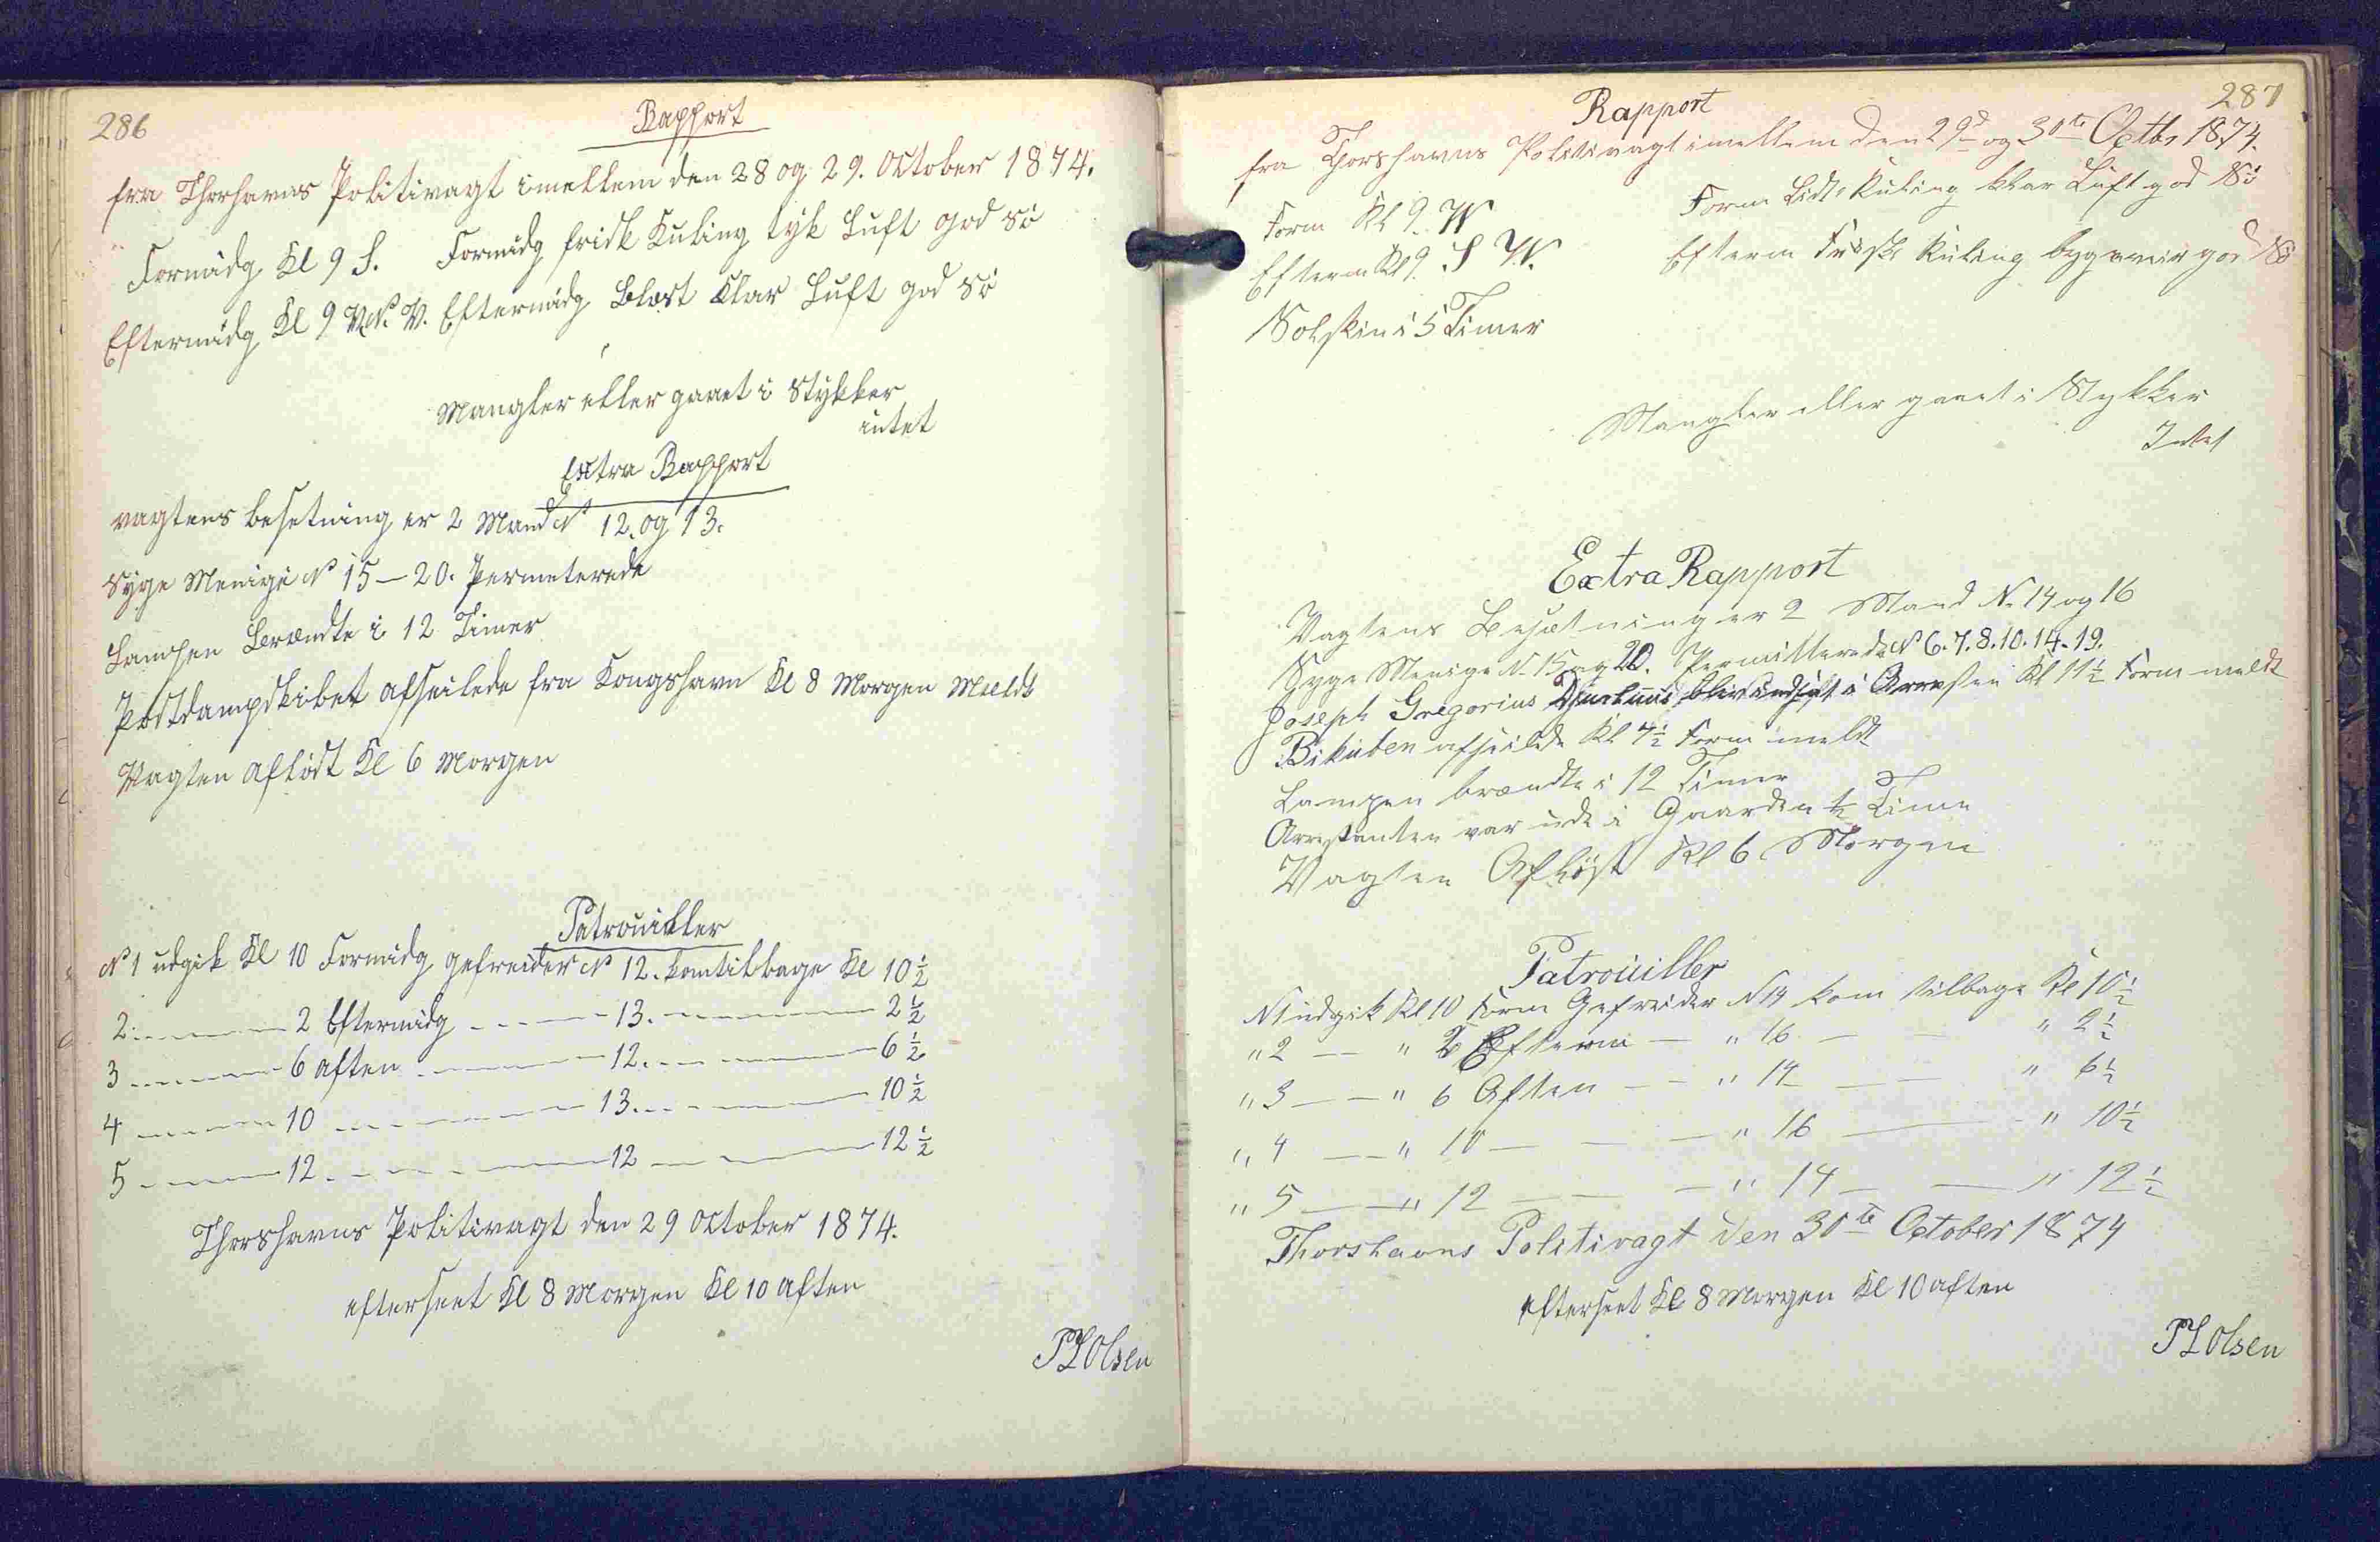 286
Rapport
fra Thorhavns Politivagt imellem den 28 og 29. October 1874.
Formidg Kl 9 S. Formidg frisk Kuling tyk Luft god Sö
Eftermidg Kl 9 V.N.V. Eftermidg Blæst Klar Luft god Sö
Mangler eller gaaet i Stykker
intet
Extra Rapport
vagtens besetning er 2 Mand No 12. og 13.
Syge Menige No 15–20. Permeterede
Lampen Brændte i 12 Timer
Postdampskibet afseilede fra Kongshavn Kl 8 Morgen Meldt
Vagten aflöst Kl 6 Morgen
Patrouiller
No 1 udgik Kl 10 Formidg gefreider No 12. kom tilbage Kl 10½
2. — 2 Eftermidg — 13. — 2½
3 — 6 aften — 12. — 6½
4 — 10 — 13. — 10½
5 — 12. — 12 — 12½
Thorshavns Politivagt den 29 October 1874.
efterseet Kl 8 Morgen Kl 10 aften
PLOlsen
287
Rapport
fra Thorshavns Politivagt imellem den 29d og 30te Octbr 1874.
Form Kl 9. W Form Lidt Kuling klar Luft god Sö
Efterm Kl 9. S W. Efterm Frisk Kuling god Sö
Solskin i 5 Timer
Mangler eller gaaet i Stykker
Intet
Extra Rapport
Vagtens Besætning er 2 Mand N. 14 og 16
Syge Menige N. 15 og 20. Permitterede No 6. 7. 8. 10. 14. 19.
Joseph Gregorius blev indsat i Arresten Kl 11½ Form meldt
Bikuben afseilede Kl 7½ Form meldt
Lampen brændte i 12 Timer
Arrestanten var ude i Gaarden ½ Time
Vagten Aflöst Kl 6 Morgen
Patrouiller
N 1 udgik Kl 10 Form Gefreider N 14 kom tilbage Kl 10½
" 2 — " 2 Efterm — " 16 — " 2½
" 3 — " 6 Aften — " 14 — " 6½
" 4 — " 10 — " 16 — " 10½
" 5 — " 12 — " 14 — " 12½
Thorshavns Politivagt den 30te October 1874
efterseet Kl 8 Morgen Kl 10 aften
PLOlsen